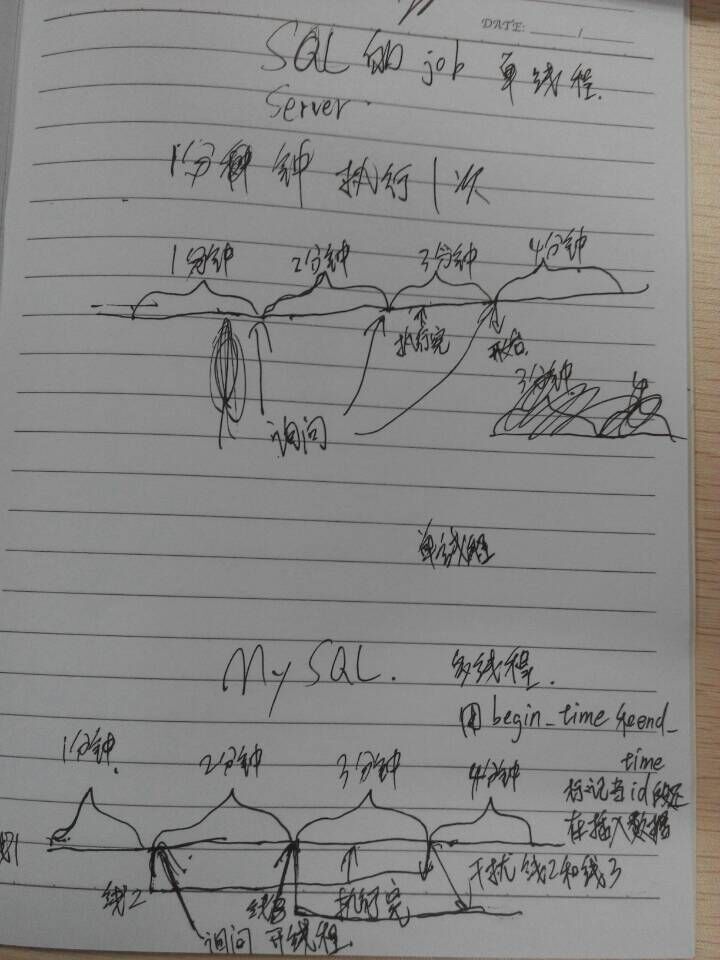 DATE: / 
SQL 的 job 单线程.
Server.
1分钟执行1次
1分钟 2分钟 3分钟 4分钟
执行完 开始.
3分钟
询问
单线程
MySQL. 多线程.
用 begin_time 和 end_
time
1分钟. 2分钟 3分钟 4分钟
标记当id
在插入数据
线1
干扰线2和线3
线2 线3 执行完
询问 开线程.